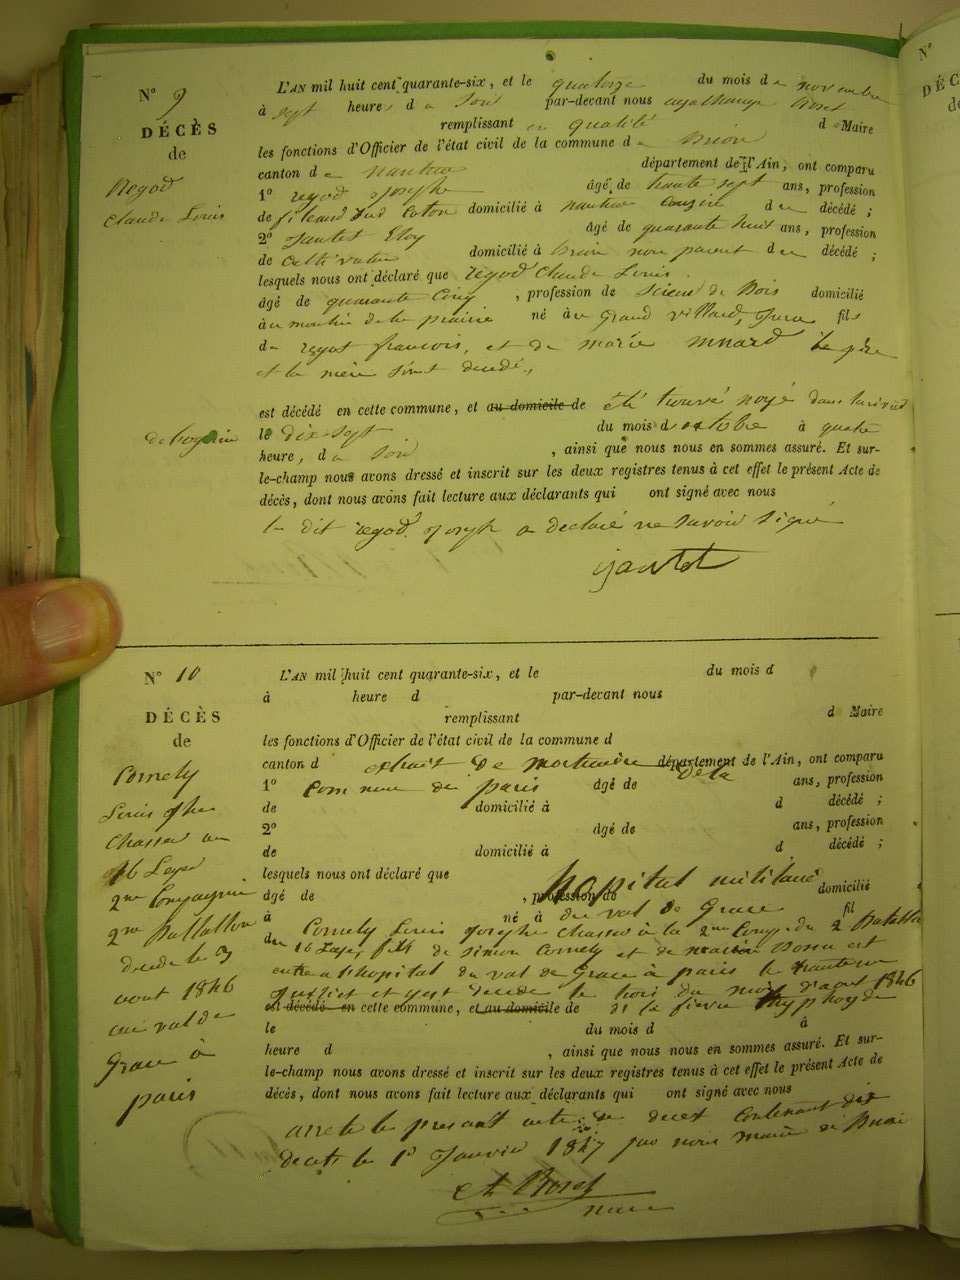 N° 9
DÉCÈS
de
Regod
Claude Louis
L'AN mil huit cent quarante-six, et le quatorze du mois de novembre
à sept heures du soir par-devant nous Boret
remplissant en qualité de Maire
les fonctions d'Officier de l'état civil de la commune de Brion
canton de nantua département de l'Ain, ont comparu
1° regod Joseph âgé de trente sept ans, profession
de fileand sud coton domicilié à nantua cousin du décédé ;
2° Jantet Eloy âgé de quarante huit ans, profession
de cultivateur domicilié à brion non parent du décédé ;
lesquels nous ont déclaré que regod Claude Louis
âgé de quarante cinq , profession de scieur de Bois domicilié
à au moulin de la prairie né à Grand villard, Jura fils
de regot francois, et de marie le père
et la mère sont decedé,
est décédé en cette commune, et au domicile de été trouvé noyé dans
le dix-sept du mois d octobre à quatre
heure, du soir , ainsi que nous nous en sommes assuré. Et sur-
le-champ nous avons dressé et inscrit sur les deux registres tenus à cet effet le présent Acte de
décès, dont nous avons fait lecture aux déclarants qui ont signé avec nous
le dit regod Joseph a declaré ne savoir signé
Jantet
N° 10
DÉCÈS
de
Cornely
Louis Jphe
Chasseur au
16 Leger
2me Compagnie
2me Battallon
decede le 3
aout 1846
au val de
Grace à
paris
L'AN mil huit cent quarante-six, et le du mois d
à heure d par-devant nous
remplissant d Maire
les fonctions d'Officier de l'état civil de la commune d
canton d extrait de mortuaire de la département de l'Ain, ont comparu
1° Commune de paris âgé de ans, profession
de domicilié à d décédé ;
2° âgé de ans, profession
de domicilié à d décédé ;
lesquels nous ont déclaré que hopital militaire
âgé de , profession de domicilié
à né à du val de Grace fil
du Cornely Louis Joseph Chasseur à la 2me Comp. du 2 Batallon
16 Leger, fils de Simon Cornely et de maria Bossu est
entre a l'hopital du val de Grace à paris le trente un
Juillet et y est decede le trois du mois d'aout 1846
est décédé en cette commune, et au domicile de de la fievre thyphoyde
le du mois d à
heure d , ainsi que nous nous en sommes assuré. Et sur-
le-champ nous avons dressé et inscrit sur les deux registres tenus à cet effet le présent Acte de
décès, dont nous avons fait lecture aux déclarants qui ont signé avec nous
arrete le present acte de deces contenant dix
deces le 1r Janvier 1847 par nous maire de Brion
A Boret
maire
N°
DÉC
de